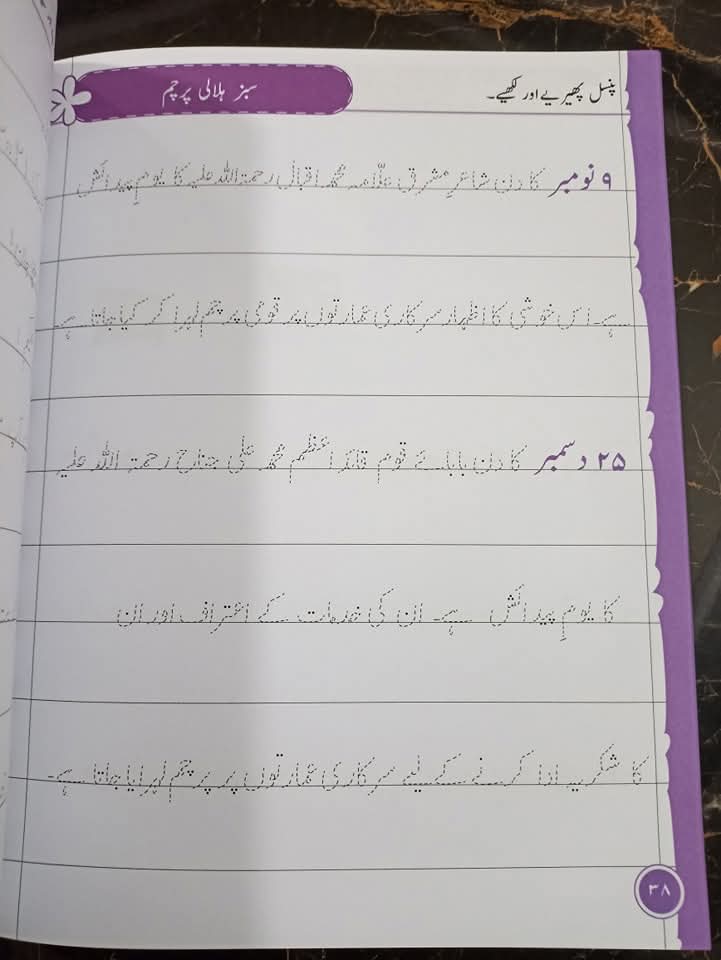 پنسل پھیریے اور لکھیے۔
سبز ہلالی پرچم
۹ نومبر کا دن شاعرِ مشرق علّامہ محمد اقبال رحمۃاللہ علیہ کا یومِ پیدائش
ہے۔ اس خوشی کا اظہار سرکاری عمارتوں پر قومی پرچم لہرا کر کیا جاتا ہے۔
۲۵ دسمبر کا دن بابائے قوم قائد اعظم محمد علی جناح رحمۃ اللہ علیہ
کا یومِ پیدائش ہے۔ ان کی خدمات کے اعتراف اور ان
کا شکریہ ادا کرنے کے لیے سرکاری عمارتوں پر پرچم لہرایا جاتا ہے۔
۳۸